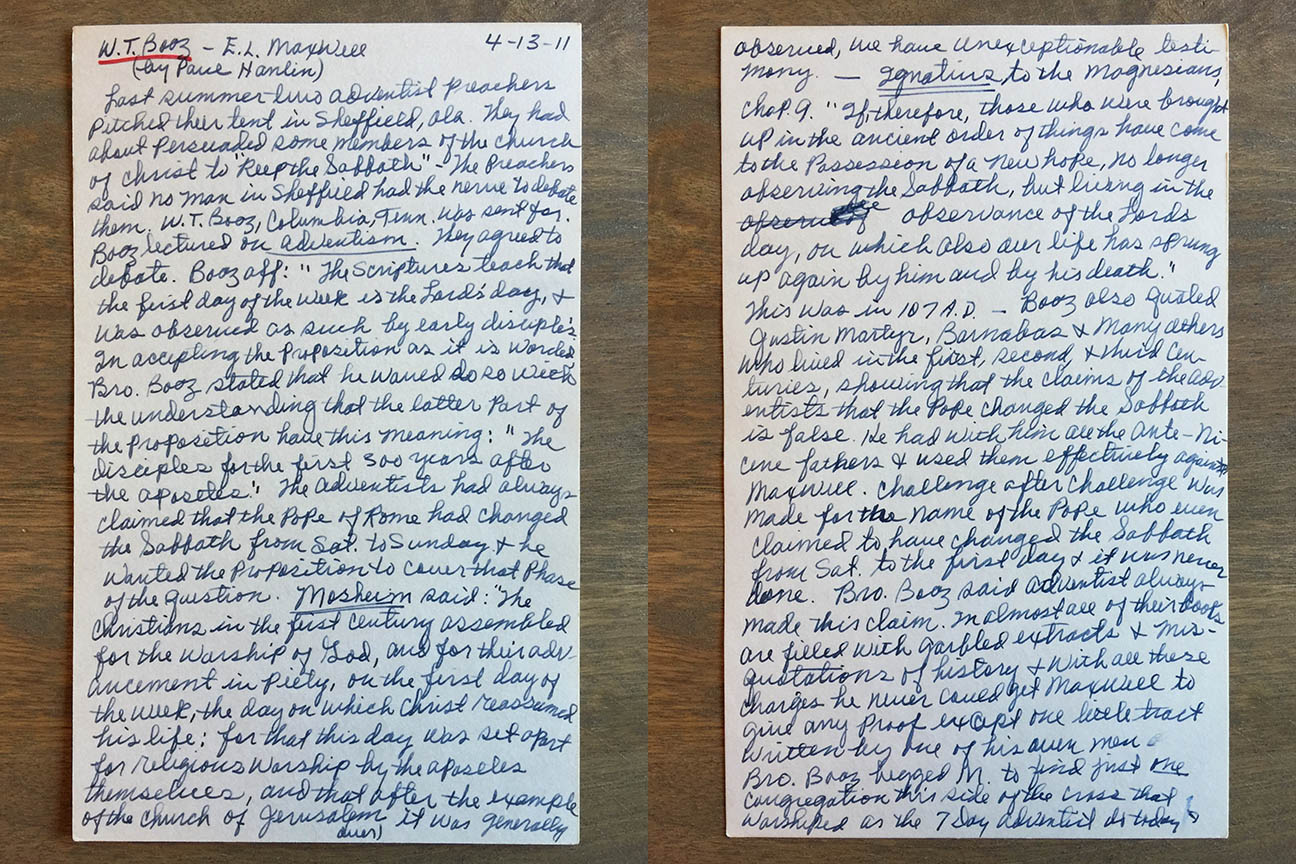 W.T. Booz – E.L. Maxwell 4-13-11
(by Paul Hanlin)
Last summer two adventist preachers
pitched their tent in Sheffield, Ala. They had
about persuaded some members of the church
of Christ to "Keep the Sabbath". The preachers
said no man in Sheffield had the nerve to debate
them. W.T. Booz, Columbia, Tenn. was sent for.
Booz lectured on adventism. They agreed to
debate. Booz aff: "The Scriptures teach that
the first day of the week is the Lord's day, &
was observed as such by early disciples.
In accepting the proposition as it is worded
Bro. Booz stated that he would do so with
the understanding that the latter part of
the proposition have this meaning: "The
disciples for the first 300 years after
the apostles." The adventists had always
claimed that the Pope of Rome had changed
the Sabbath from Sat. to Sunday & he
wanted the proposition to cover that phase
of the question. Mosheim said: "The
Christians in the first century assembled
for the worship of God, and for their adv-
ancement in piety, on the first day of
the week, the day on which Christ reassumed
his life: for that this day was set apart
for religious worship by the apostles
themselves, and that after the example
of the church of Jerusalem it was generally
(over)
observed, we have unexceptionable testi-
mony. — Ignatius to the Magnesians,
Chap. 9. "If therefore, those who were brought
up in the ancient order of things have come
to the possession of a new hope, no longer
observing the Sabbath, but living in the
observance of the Lords
day, on which also our life has sprung
up again by him and by his death."
This was in 107 A.D. — Booz also quoted
Justin Martyr, Barnabas & many others
who lived in the first, second, & third cen-
turies, showing that the claims of the adv-
entists that the Pope changed the Sabbath
is false. He had with him all the Ante-Ni-
cene fathers & used them effectively against
Maxwell. Challenge after challenge was
made for the name of the Pope who even
claimed to have changed the Sabbath
from Sat. to the first day & it was never
done. Bro. Booz said adventist always
made this claim. In almost all of their books
are filled with garbled extracts & mis-
quotations of history & with all these
charges he never could get Maxwell to
give any proof except one little tract
written by one of his own men
Bro. Booz begged M. to find just one
congregation this side of the cross that
worshiped as the 7 Day adventist do today